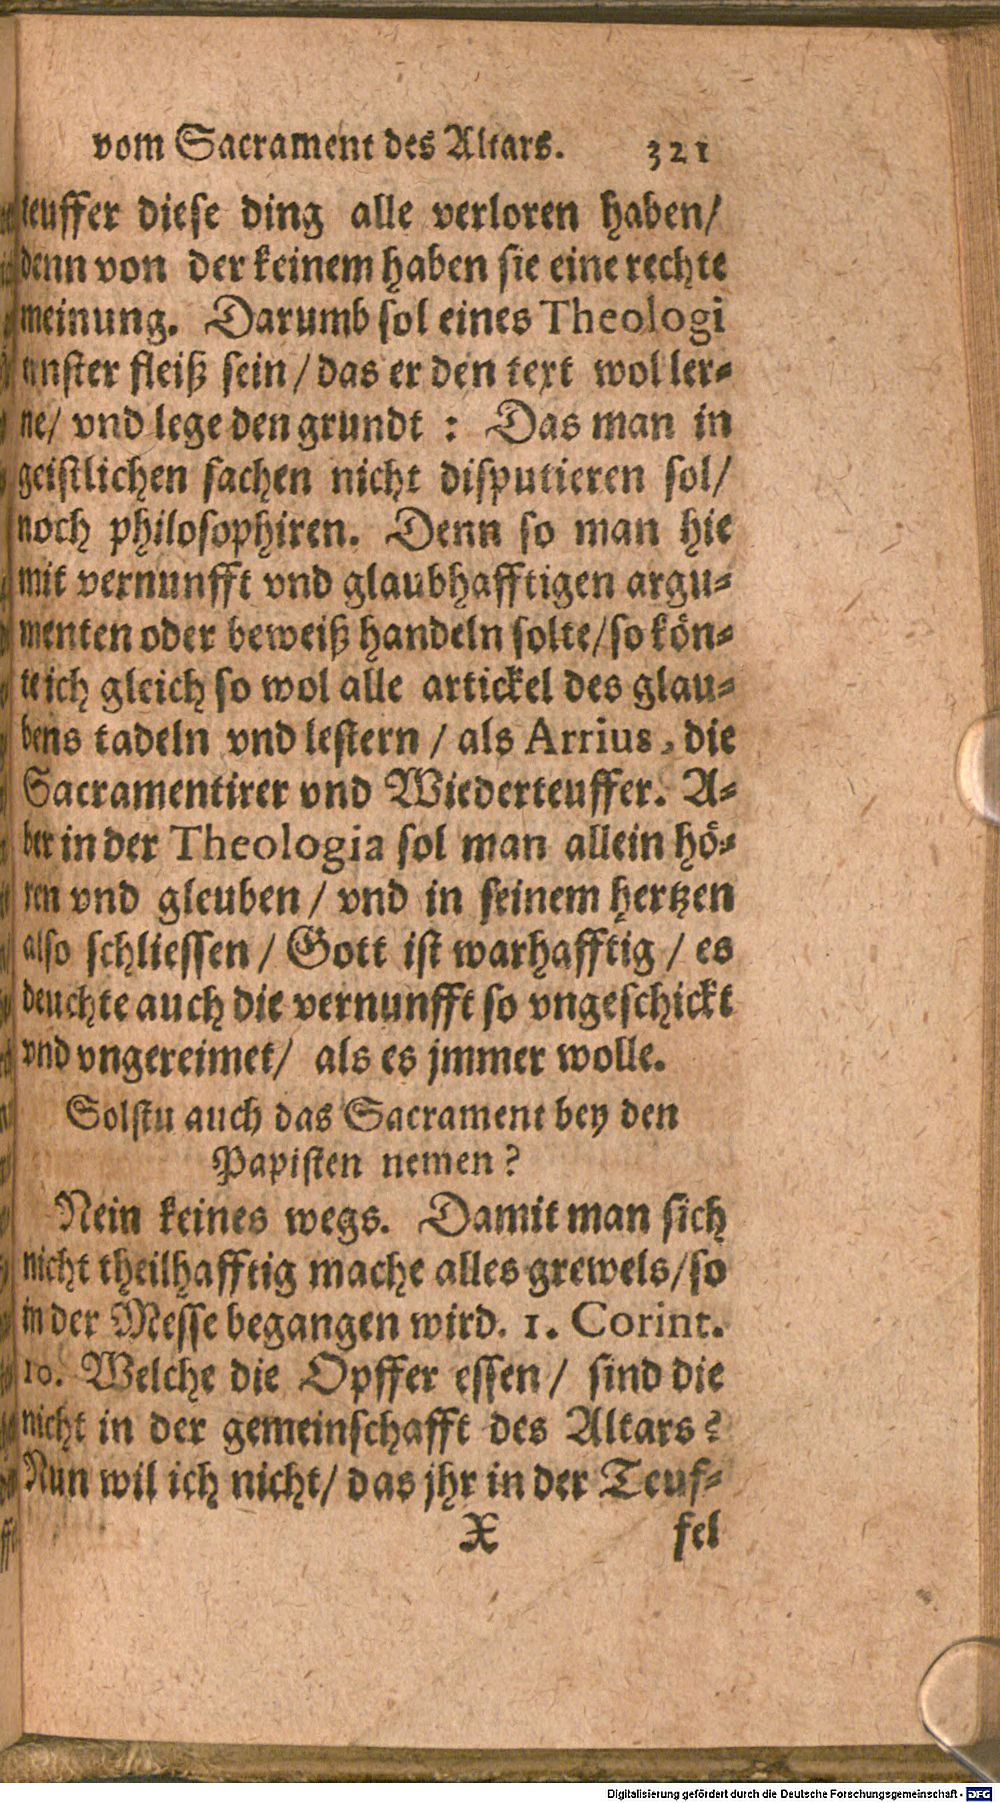 vom Sacrament des Altars. 321
teuffer diese ding alle verloren haben/
denn von der keinem haben sie eine rechte
meinung. Darumb sol eines Theologi
ernster fleiß sein / das er den text wol ler-
ne/ vnd lege den grundt : Das man in
geistlichen sachen nicht disputieren sol/
noch philosophiren. Denn so man hie
mit vernunfft vnd glaubhafftigen argu-
menten oder beweiß handeln solte/so kön-
te ich gleich so wol alle artickel des glau-
bens tadeln vnd lestern / als Arrius, die
Sacramentirer vnd Wiederteuffer. A-
ber in der Theologia sol man allein hö-
ren vnd gleuben / vnd in seinem hertzen
also schliessen / Gott ist warhafftig / es
deuchte auch die vernunfft so vngeschickt
vnd vngereimet/ als es jmmer wolle.
Solstu auch das Sacrament bey den
Papisten nemen?
Nein keines wegs. Damit man sich
nicht theilhafftig mache alles grewels/so
in der Messe begangen wird. 1. Corint.
10. Welche die Opffer essen / sind die
nicht in der gemeinschafft des Altars?
Nun wil ich nicht/ das jhr in der Teuf-
X fel
Digitalisierung gefördert durch die Deutsche Forschungsgemeinschaft - DFG